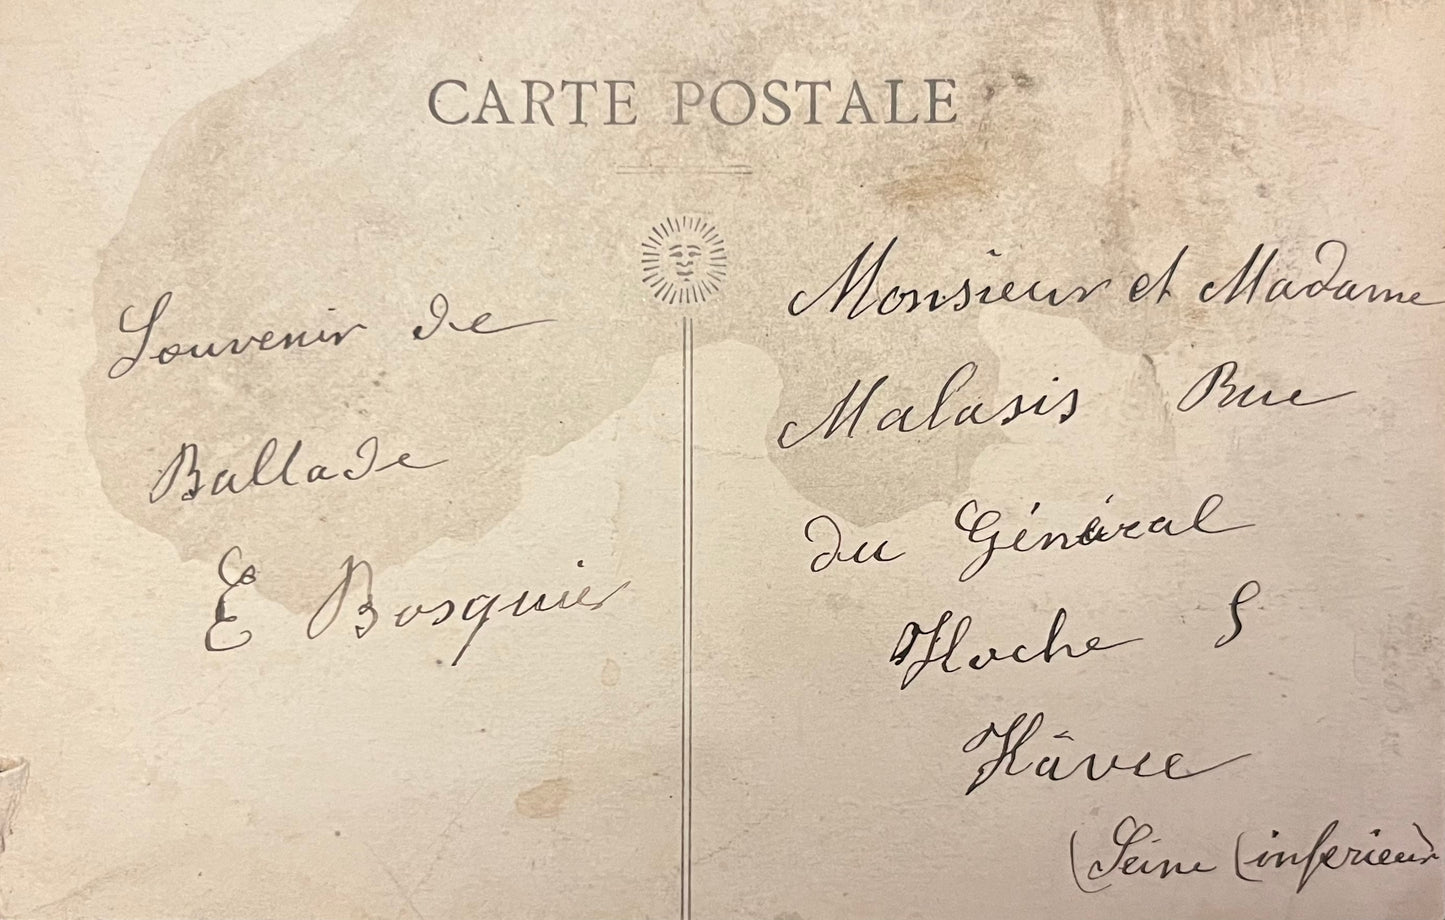 CARTE POSTALE
Souvenir de
Ballade
E Bosquier
Monsieur et Madame
Malasis Rue
du Général
Hoche 9
Hâvre
(Seine (inferieur)